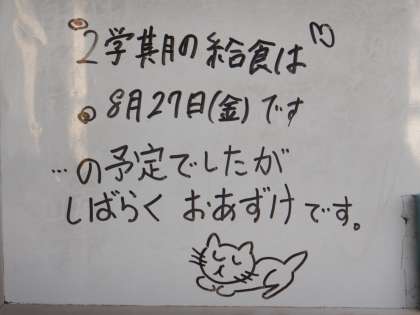 2学期の給食は
8月27日(金)です
…の予定でしたが
しばらく おあずけです。